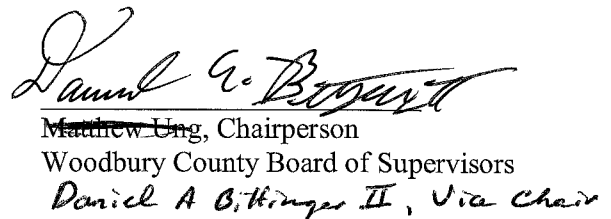 Daniel A. Bittinger II
Matthew Ung, Chairperson
Woodbury County Board of Supervisors
Daniel A Bittinger II, Vice Chair